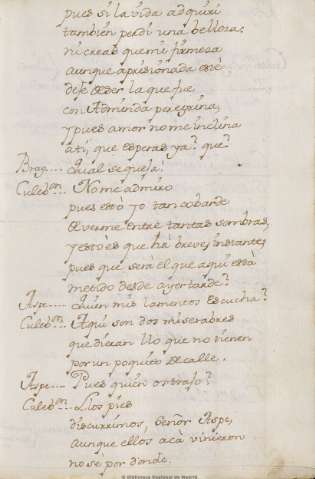 pues si la vida adquiri
tambien perdi una belleza;
ni creas que mi fineza
aunque aprisionada esté
dexe de ser la que fue
con Adminda peregrina,
y pues amor no me inclina
a ti, que esperas ya? que?
Brag.... qual se quexa!
Culebrn.. No me admiro
pues estó yo tan cobarde
de verme entre tantas sombras,
y esto es que ha breve instante;
pues que será el que aqui está
metido desde ayer tarde?
Aspe.... quien mis lamentos escucha?
Culebrn.. Aqui son dos miserables
que dieran lo que no tienen
por un poquito de calle.
Aspe.... Pues quien os trajo?
Culebrn... Los pies
discurrimos, Señor Aspe,
aunque ellos acá vinieron
no se por donde.
© Biblioteca Nacional de España